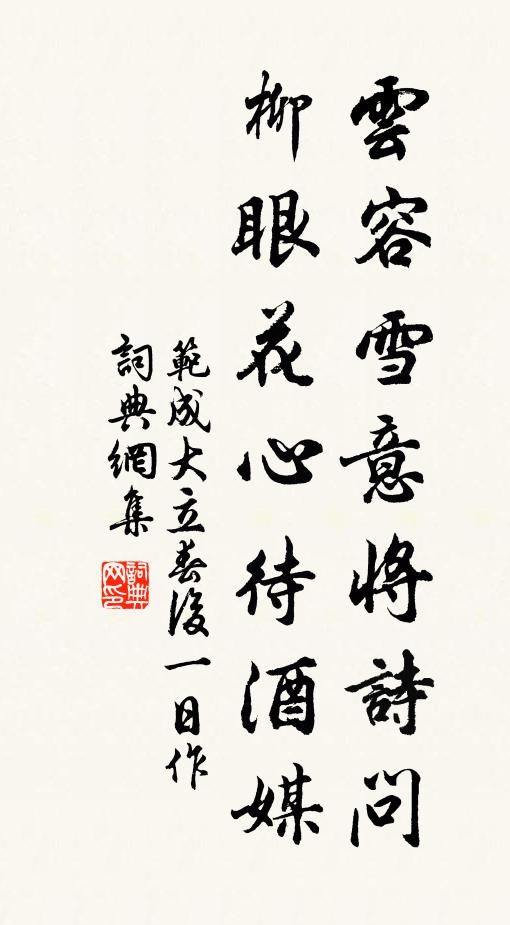 雲容雪意將詩問
柳眼花心待酒媒
範成大立春後一日作
詞典網集
詞典
网印